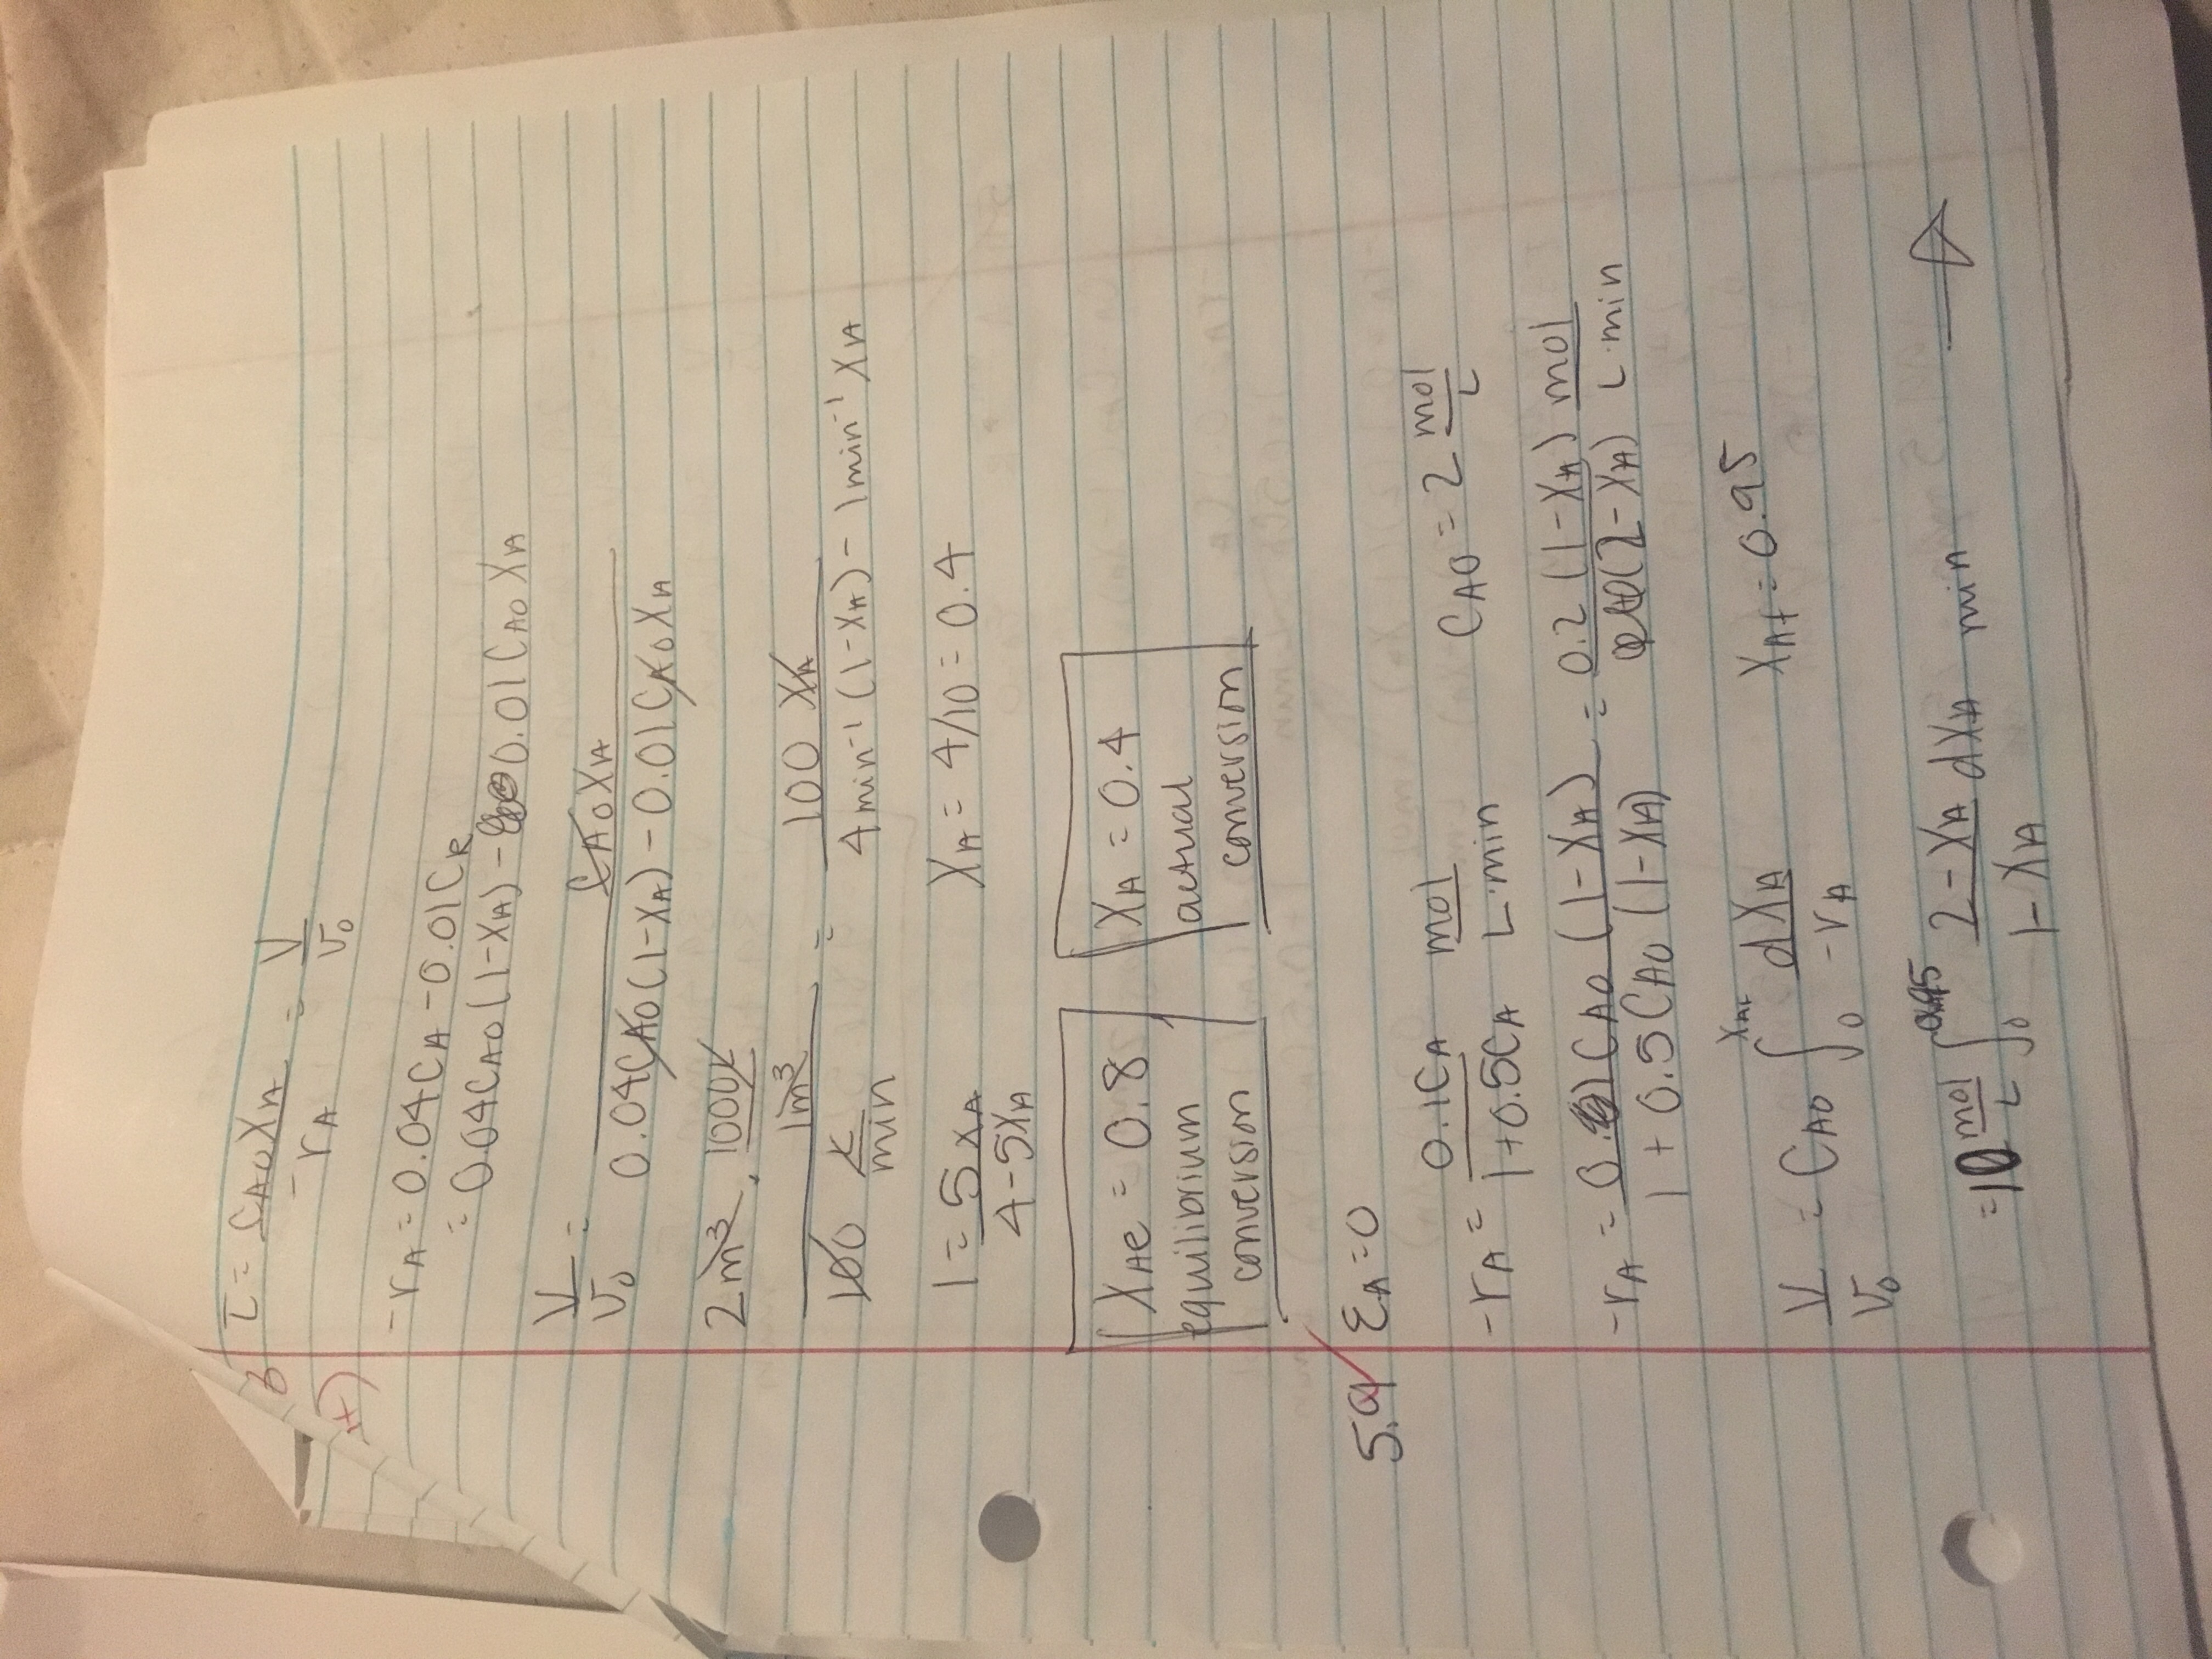 τ = C_A0 X_A / -r_A = V / v_0
-r_A = 0.04C_A - 0.01C_R
= 0.04C_A0(1-X_A) - 0.01C_A0 X_A
V / v_0 = C_A0 X_A / 0.04C_A0(1-X_A) - 0.01C_A0 X_A
2m³ · 1000L / 1m³ / 100 L/min = 100 X_A / 4min⁻¹(1-X_A) - 1min⁻¹ X_A
1 = 5X_A / 4-5X_A X_A = 4/10 = 0.4
X_Ae = 0.8 equilibrium conversion
X_A = 0.4 actual conversion
5.9 ε_A = 0
-r_A = 0.1C_A / 1+0.5C_A mol / L·min C_A0 = 2 mol / L
-r_A = 0.1C_A0(1-X_A) / 1 + 0.5C_A0(1-X_A) = 0.2(1-X_A) / (2-X_A) mol / L·min
V / v_0 = C_A0 ∫_0^X_Af dX_A / -r_A X_Af = 0.95
= 10 mol / L ∫_0^0.95 2-X_A / 1-X_A dX_A min →